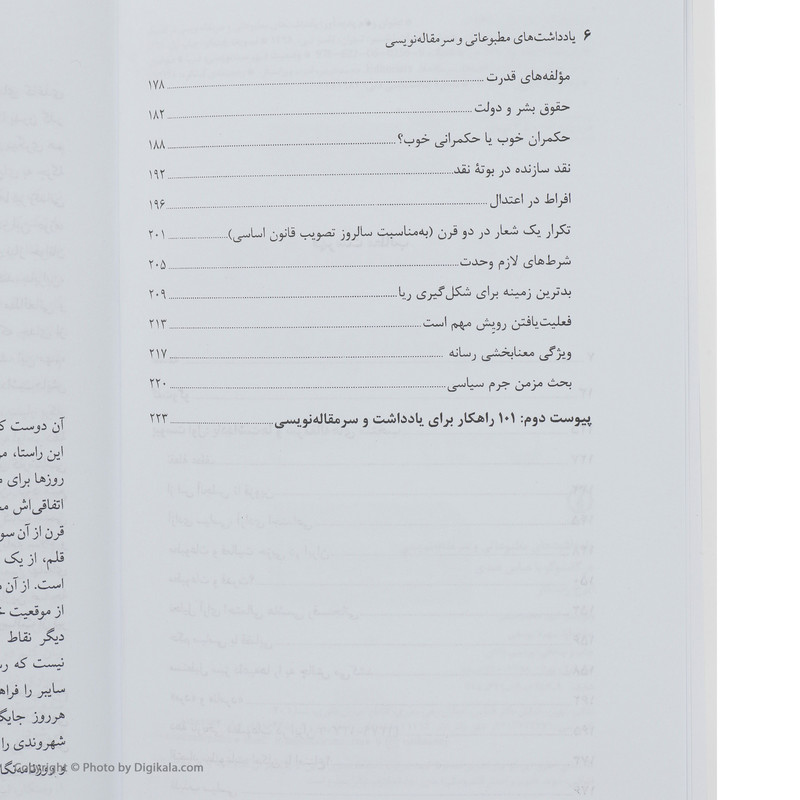 ۶ یادداشت‌های مطبوعاتی و سرمقاله‌نویسی
مؤلفه‌های قدرت ........ ۱۷۸
حقوق بشر و دولت ........ ۱۸۲
حکمران خوب یا حکمرانی خوب؟ ........ ۱۸۸
نقد سازنده در بوتهٔ نقد ........ ۱۹۲
افراط در اعتدال ........ ۱۹۶
تکرار یک شعار در دو قرن (به‌مناسبت سالروز تصویب قانون اساسی) ........ ۲۰۱
شرط‌های لازم وحدت ........ ۲۰۵
بدترین زمینه برای شکل‌گیری ریا ........ ۲۰۹
فعلیت‌یافتن رویِش مهم است ........ ۲۱۳
ویژگی معنابخشی رسانه ........ ۲۱۷
بحث مزمن جرم سیاسی ........ ۲۲۰
پیوست دوم: ۱۰۱ راهکار برای یادداشت و سرمقاله‌نویسی ........ ۲۲۳
آن دوست
این راستا،
روزها برای
اتفاقی‌اش
قرن از آن
قلم، از یک
است. از آن
از موقعیت
دیگر نقاط
نیست که
سایبر را
هرروز
شهروندی را
Copyright © Photo by Digikala.com